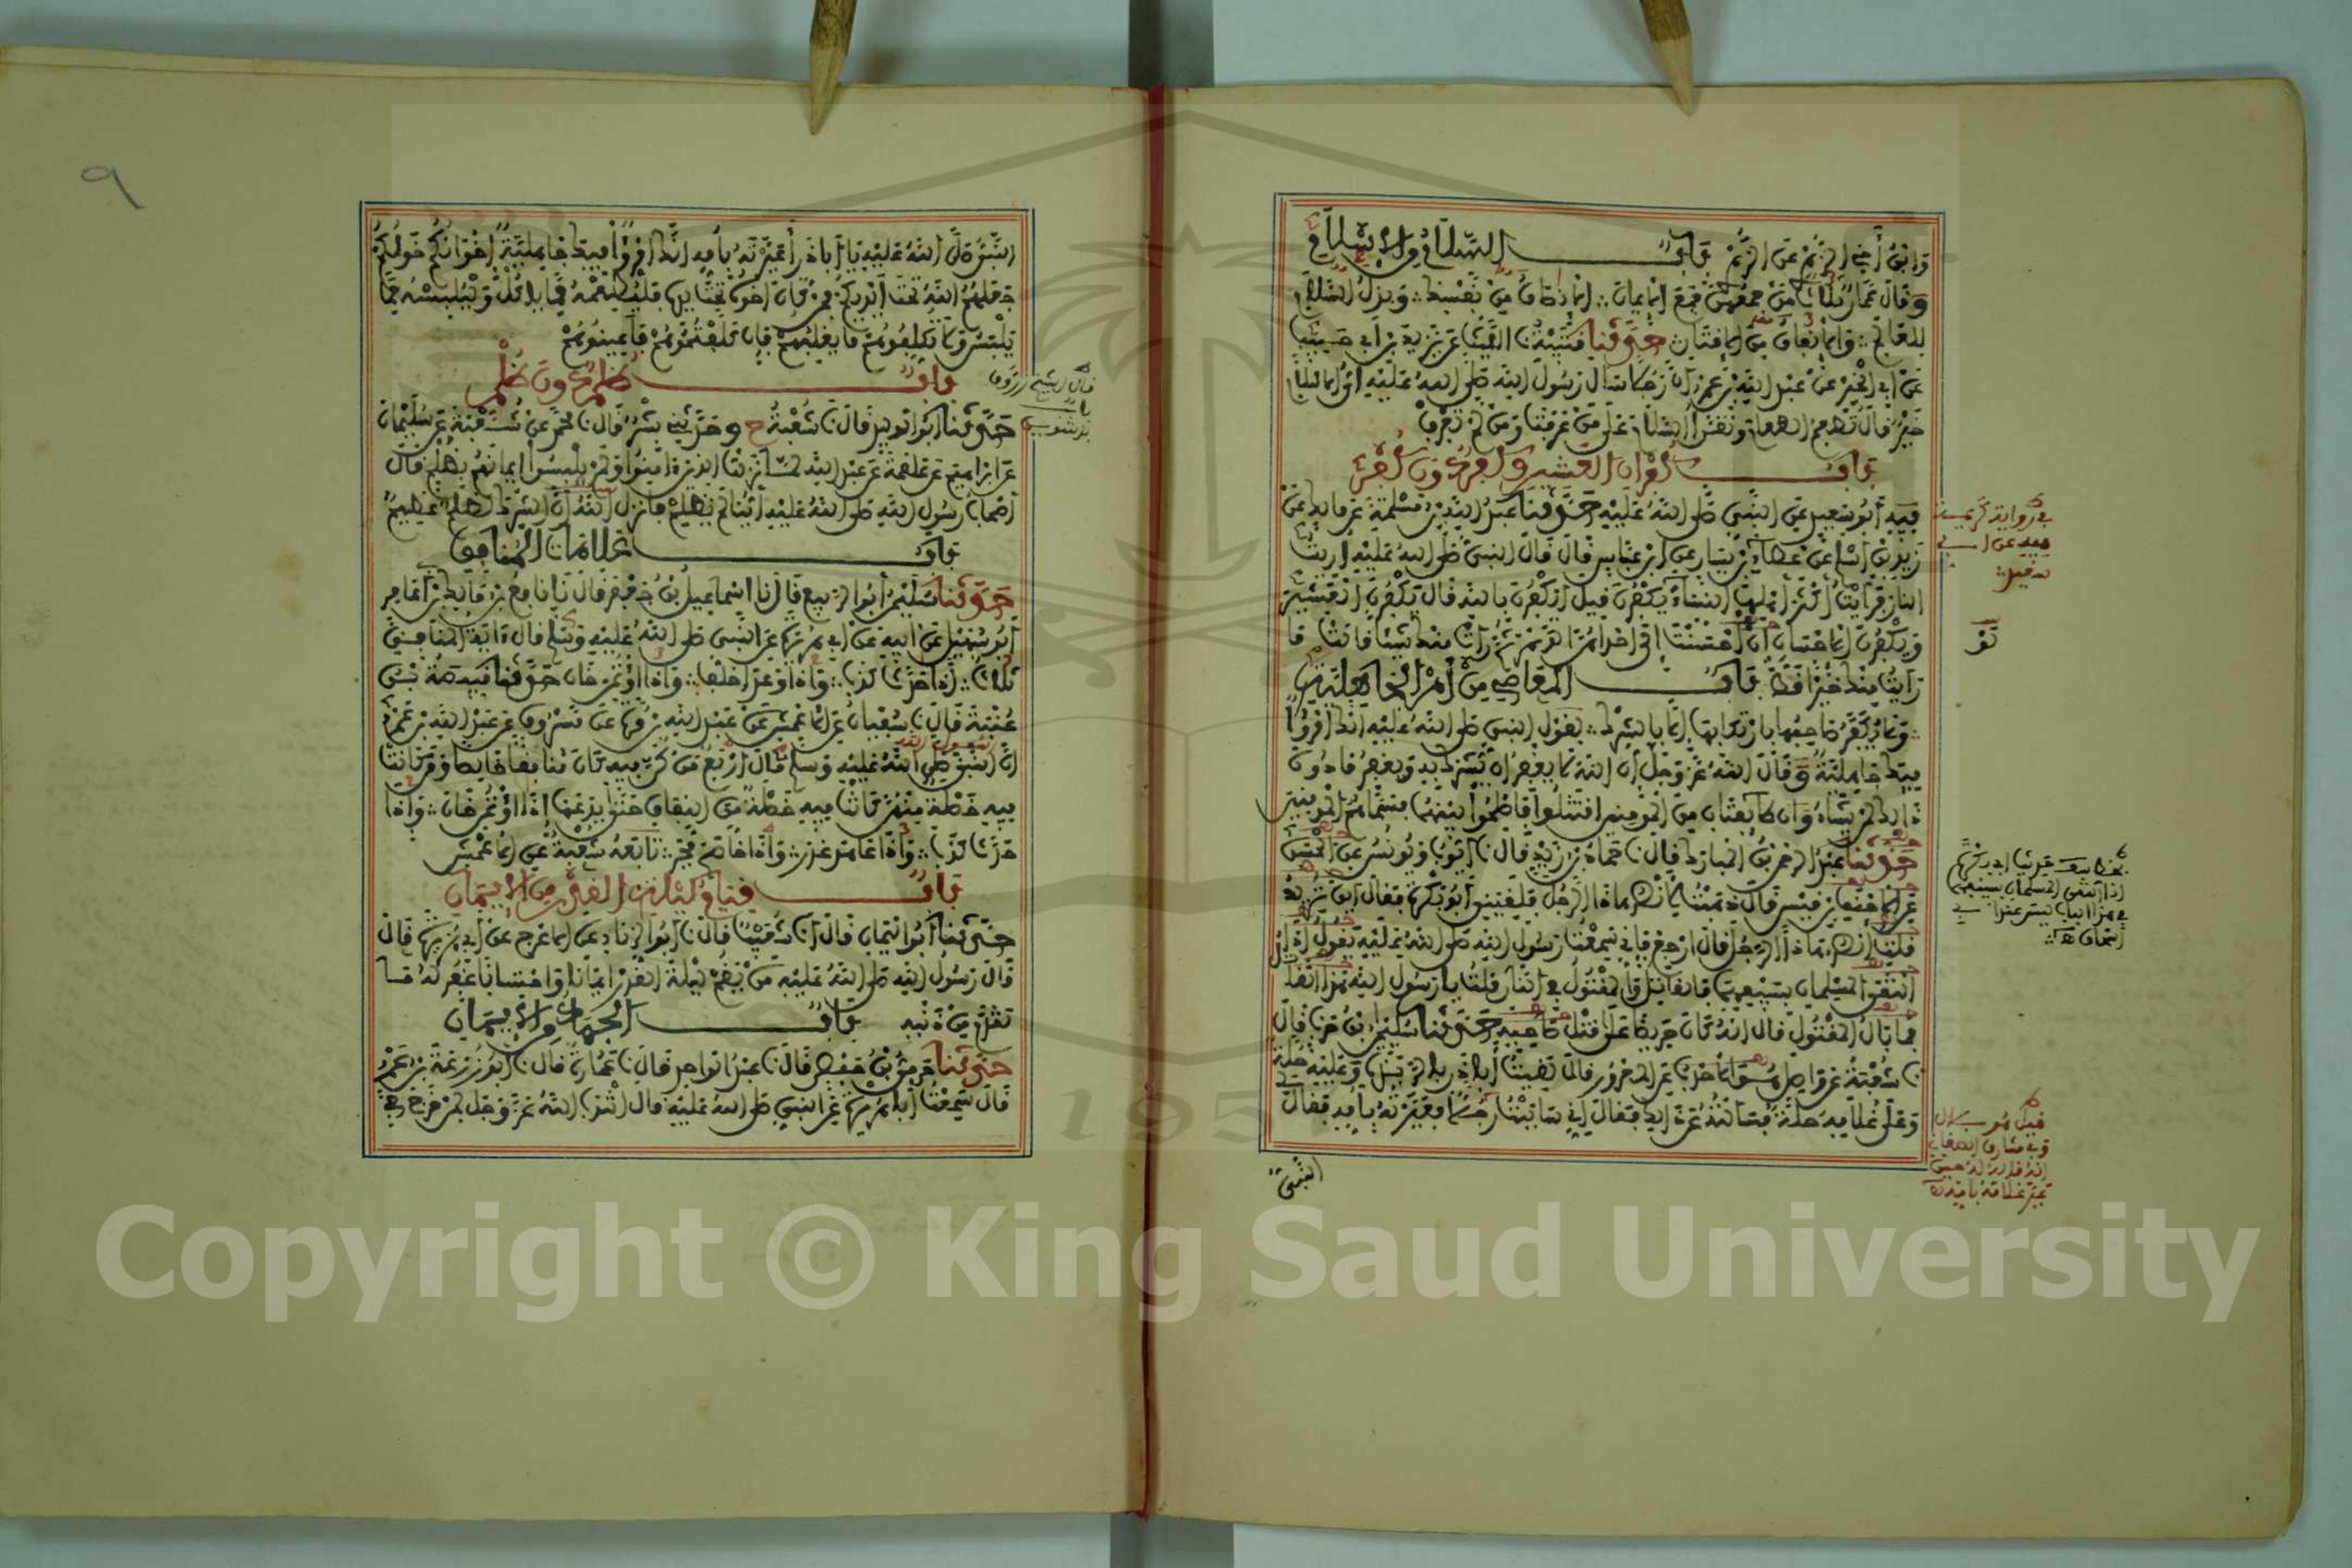 وابن أخي الزهري عن الزهري باب السلام من الإسلام
وقال عمار ثلاث من جمعهن جمع الإيمان الإنصاف من نفسك وبذل السلام
للعالم والإنفاق من الإقتار حدثنا قتيبة نا الليث عن يزيد بن أبي حبيب
عن أبي الخير عن عبد الله بن عمرو أن رجلا سأل رسول الله صلى الله عليه أي الإسلام
خير قال تطعم الطعام وتقرأ السلام على من عرفت ومن لم تعرف
باب كفران العشير وكفر دون كفر
فيه أبو سعيد عن النبي صلى الله عليه حدثنا عبد الله بن مسلمة عن مالك عن
زيد بن أسلم عن عطاء بن يسار عن ابن عباس قال قال النبي صلى الله عليه أريت
النار فرأيت أكثر أهلها النساء يكفرن قيل أيكفرن بالله قال يكفرن العشير
ويكفرن الإحسان لو أحسنت إلى إحداهن الدهر ثم رأت منك شيئا قالت ما
رأيت منك خيرا قط باب المعاصي من أمر الجاهلية
ولا يكفر صاحبها بارتكابها إلا بالشرك لقول النبي صلى الله عليه إنك امرؤ
فيك جاهلية وقال الله عز وجل إن الله لا يغفر أن يشرك به ويغفر ما دون
ذلك لمن يشاء وإن طائفتان من المومنين اقتتلوا فأصلحوا بينهما فسماهم المومنين
حدثنا عبد الرحمن بن المبارك قال نا حماد بن زيد قال نا أيوب ويونس عن الحسن
عن الأحنف بن قيس قال ذهبت لأنصر هذا الرجل فلقيني أبو بكرة فقال أين تريد
قلت أنصر هذا الرجل قال ارجع فإني سمعت رسول الله صلى الله عليه يقول إذا
التقى المسلمان بسيفيهما فالقاتل والمقتول في النار قلت يا رسول الله هذا القاتل
فما بال المقتول قال إنه كان حريصا على قتل صاحبه حدثنا سليمن بن حرب قال
نا شعبة عن واصل الأحدب عن المعرور قال لقيت أبا ذر بالربذة وعليه حلة
وعلى غلامه حلة فسألته عن ذلك فقال إني ساببت رجلا فعيرته بأمه فقال
النبي
في رواية كريمة
فيه عن أبي
سعيد
النبي صلى الله عليه يا أبا ذر أعيرته بأمه إنك امرؤ فيك جاهلية إخوانكم خولكم
جعلهم الله تحت أيديكم فمن كان أخوه تحت يده فليطعمه مما يأكل وليلبسه مما
يلبس ولا تكلفوهم ما يغلبهم فإن كلفتموهم فأعينوهم
باب ظلم دون ظلم
حدثنا أبو الوليد قال نا شعبة ح وحدثني بشر قال نا محمد عن شعبة عن سليمان
عن إبراهيم عن علقمة عن عبد الله لما نزلت الذين ءامنوا ولم يلبسوا إيمانهم بظلم قال
أصحاب رسول الله صلى الله عليه أينا لم يظلم فأنزل الله إن الشرك لظلم عظيم
باب علامات المنافق
حدثنا سليمن أبو الربيع قال نا إسماعيل بن جعفر قال نا نافع بن مالك بن أبي عامر
أبو سهيل عن أبيه عن أبي هريرة عن النبي صلى الله عليه وسلم قال ءاية المنافق
ثلاث إذا حدث كذب وإذا وعد أخلف وإذا اؤتمن خان حدثنا قبيصة بن
عقبة قال نا سفيان عن الأعمش عن عبد الله بن مرة عن مسروق عن عبد الله بن عمرو
أن النبي صلى الله عليه وسلم قال أربع من كن فيه كان منافقا خالصا ومن كانت
فيه خصلة منهن كانت فيه خصلة من النفاق حتى يدعها إذا اؤتمن خان وإذا
حدث كذب وإذا عاهد غدر وإذا خاصم فجر تابعه شعبة عن الأعمش
باب قيام ليلة القدر من الإيمان
حدثنا أبو اليمان قال أنا شعيب قال نا أبو الزناد عن الأعرج عن أبي هريرة قال
قال رسول الله صلى الله عليه من يقم ليلة القدر إيمانا واحتسابا غفر له ما
تقدم من ذنبه باب الجهاد من الإيمان
حدثنا حرمي بن حفص قال نا عبد الواحد قال نا عمارة قال نا أبو زرعة بن عمرو
قال سمعت أبا هريرة عن النبي صلى الله عليه قال انتدب الله عز وجل لمن خرج في
٩
Copyright © King Saud University